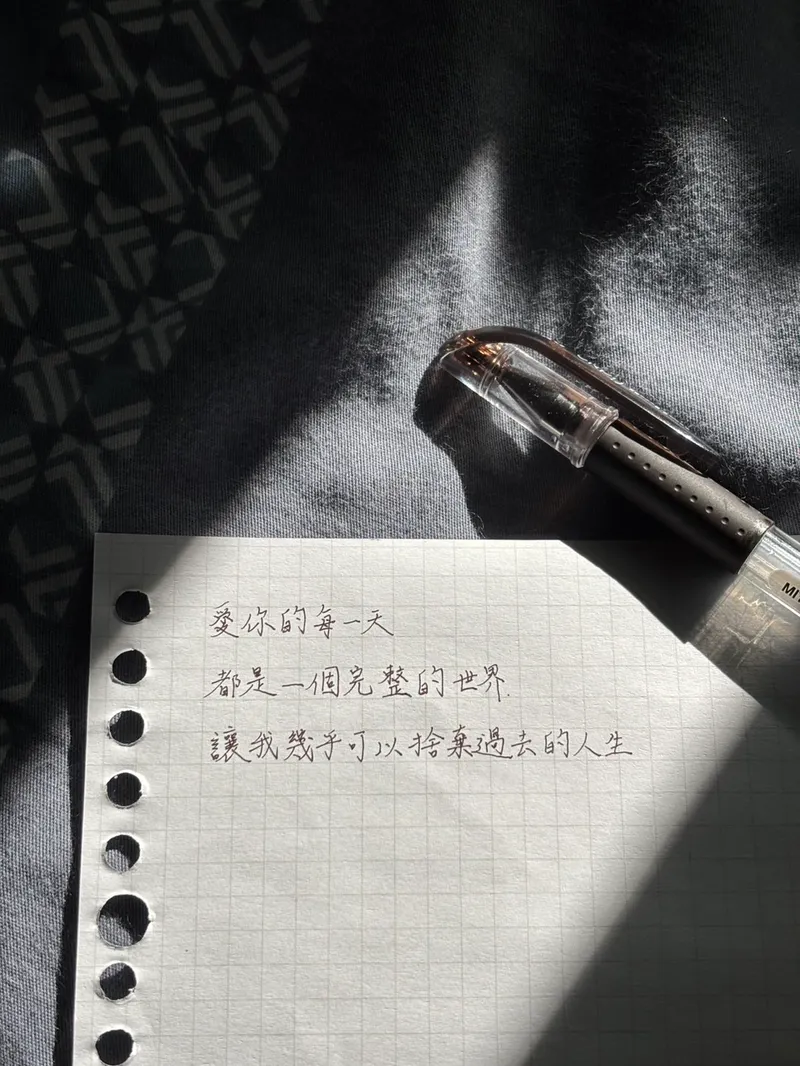 愛你的每一天
都是一個完整的世界.
讓我幾乎可以捨棄過去的人生